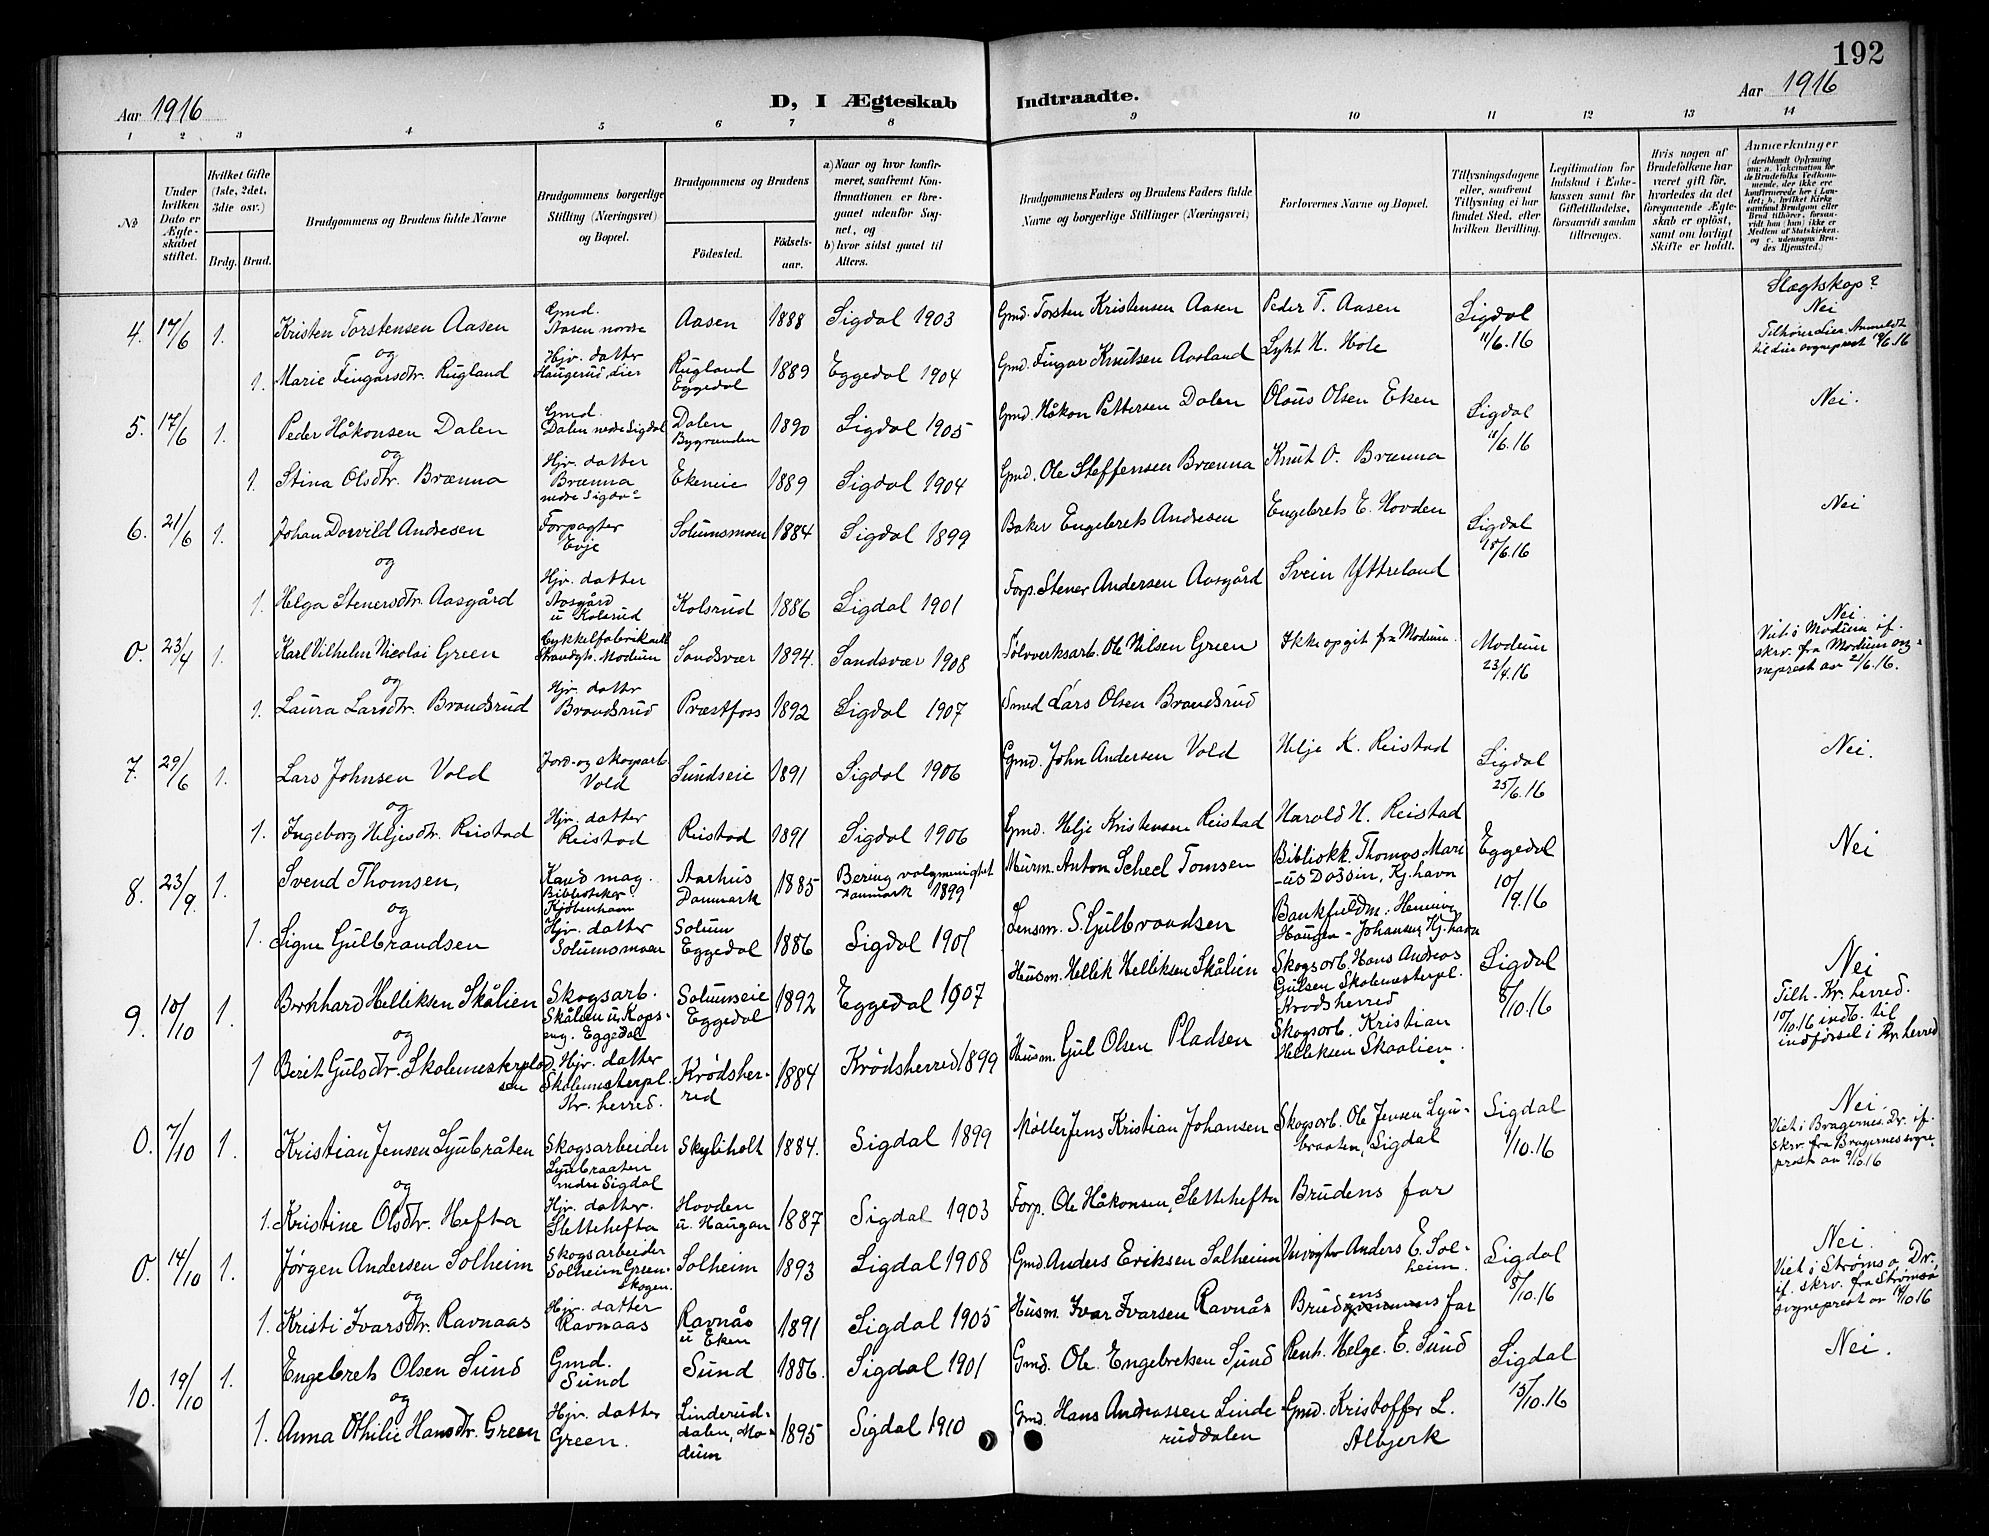 192
Aar 1916
D, I Ægteskab Indtraadte.
Aar 1916
1 2 3 4 5 6 7 8 9 10 11 12 13 14
No.
Under hvilken Dato er Ægteskabet stiftet.
Hvilket Gifte (1ste, 2det, 3die osv.)
Brdg. Brud.
Brudgommens og Brudens fulde Navne
Brudgommens borgerlige Stilling (Næringsvei) og Bopæl.
Brudgommens og Brudens
Fødested.
Fødsels-aar.
a) Naar og hvor konfirmeret, saafremt Konfirmationen er foregaaet udenfor Sognet, og
b) hvor sidst gaaet til Alters.
Brudgommens Faders og Brudens Faders fulde Navne og borgerlige Stillinger (Næringsvei)
Forlovernes Navne og Bopæl.
Tillysningsdagene eller, saafremt Tillysning ei har fundet Sted, efter hvilken Bevilling.
Legitimation for Indskud i Enkekassen samt for Giftetilladelse, forsaavidt saadan tiltrænges.
Hvis nogen af Brudefolkene har været gift før, hvorledes da det foregaaende Ægteskab er opløst, samt om lovligt Skifte er holdt.
Anmærkninger
Slægtskap?
4. 17/6 1. Kristen Torstensen Aasen Gmd. Aasen nordre Aasen 1888 Sigdal 1903 Gmd. Torsten Kristensen Aasen Peder T. Aasen Sigdal 11/6.16 Nei
Tilhører Lier. Anmeldt til Lier sogneprest
og
1. Marie Fingarsdtr. Rugland Hjv. datter Haugerud, Lier Rugland Eggedal 1889 Eggedal 1904 Gmd. Fingar Knutsen Aasland H. Hole
5. 17/6 1. Peder Håkonsen Dalen Gmd. Dalen nedre Sigdal Dalen Bygranden 1890 Sigdal 1905 Gmd. Håkon Pettersen Dalen Olaus Olsen Eken Sigdal 11/6.16 Nei.
og
1. Stina Olsdtr. Brænna Hjv. datter Brænna nedre Sigdal Ekeneie 1889 Sigdal 1904 Gmd. Ole Steffensen Brænna Knut O. Brænna
6. 21/6 1. Johan Dorvild Andresen Forpagter Evje Solumsmoen 1884 Sigdal 1899 Baker Engebret Andresen Engebret E. Hovden Sigdal 18/6.16 Nei
og
1. Helga Stenersdtr. Aasgård Hjv. datter Aasgård u Kolsrud Kolsrud 1886 Sigdal 1901 Forp. Stener Andersen Aasgård Svein Yttreland
0. 23/4 1. Karl Vilhelm Nicolai Green Cykkelfabrik Modum Sandsvær 1894. Sandsvær 1908 Sølvverksarb. Ole Nilsen Green Ikke opgit fra Modum. Modum 23/4.16 Nei.
Viet i Modum if. skrv. fra Modum sogneprest av 2/6.16.
og
1. Laura Larsdtr. Brandsrud Hjv. datter Brandsrud Præstfoss 1892 Sigdal 1907 Smed Lars Olsen Brandsrud
7. 29/6 1. Lars Johnsen Vold Jord- og skogsarb. Vold Sundseie 1891 Sigdal 1906 Gmd. John Andersen Vold Helje K. Reistad Sigdal 25/6.16 Nei.
og
1. Ingeborg Heljesdtr. Reistad Hjv. datter Reistad Reistad 1891 Sigdal 1906 Gmd. Helje Kristensen Reistad Harald H. Reistad
8. 23/9. 1. Svend Thomsen, Kand. mag. Bibliotekar Kjøbenhavn Aarhus Danmark 1885 Bering valgmenighet Danmark 1899 Murm. Anton Scheel Tomsen Bibliotkk. Thomas Mari-us Døssin, Kj.havn Eggedal 10/9.16 Nei
og
1. Signe Gulbrandsen Hjv. datter Solumsmoen Solum Eggedal 1886 Sigdal 1901 Lensm. S. Gulbrandsen Bankfuldm. Henning Haugen-Johansen Kj.havn
9. 10/10 1. Bernhard Helliksen Skålien Skogsarb. Skålien u. Kopseng. Eggedal Solumseie Eggedal 1892 Eggedal 1907 Husm. Hellik Helliksen Skålien Skogsarb. Hans Andreas Gulsen Skolemesterpl. Krødsherred Sigdal 8/10.16 Nei
Tilh. Kr. herred. 10/10.16 indb. til indførsel i Kr. herred
og
1 Berit Gulsdtr. Skolemesterpladsen Hjv. datter Skolemesterpl. Kr. herred. Krødsherred 1884 Krødsherred 1899 Husm. Gul Olsen Pladsen Skogsarb. Kristian Helliksen Skaalien.
0. 7/10 1. Kristian Jensen Ljubråten Skogsarbeider Ljubraaten nedre Sigdal Skyliholt 1884. Sigdal 1899 Møller Jens Kristian Johansen Skogsarb. Ole Jensen Lju-braaten, Sigdal Sigdal 1/10.16 Nei.
Viet i Bragernes. Dr. if. skrv. fra Bragernes sogneprest av 9/10.16
og
1. Kristine Olsdtr. Hefta Hjv. datter. Slettehefta Hovden u. Haugan 1887 Sigdal 1903 Forp. Ole Håkonsen, Slettehefta Brudens far
0. 14/10 1. Jørgen Andersen Solheim Skogsarbeider Solheim Green-skogen. Solheim 1893 Sigdal 1908 Gmd. Anders Eriksen Solheim Veivogter Anders E. Sol-heim. Sigdal 8/10.16 Nei.
Viet i Strømsø, Dr., if. skrv. fra Strømsø sogneprest av 14/10.16
og
1. Kristi Ivarsdtr. Ravnaas Hjv. datter Ravnaas Ravnås u Eken 1891 Sigdal 1905 Husm. Ivar Ivarsen Ravnås Brudens far
10. 19/10 1. Engebret Olsen Sund Gmd. Sund Sund 1886. Sigdal 1901 Gmd. Ole Engebretsen Sund Rent. Helge E. Sund Sigdal 15/10.16 Nei.
og
1. Anna Othilie Hansdtr. Green Hjv. datter Green. Linderud-dalen, Mo-dum 1895 Sigdal 1910 Gmd. Hans Andreassen Linde-ruddalen Gmd. Kristoffer L. Albjerk